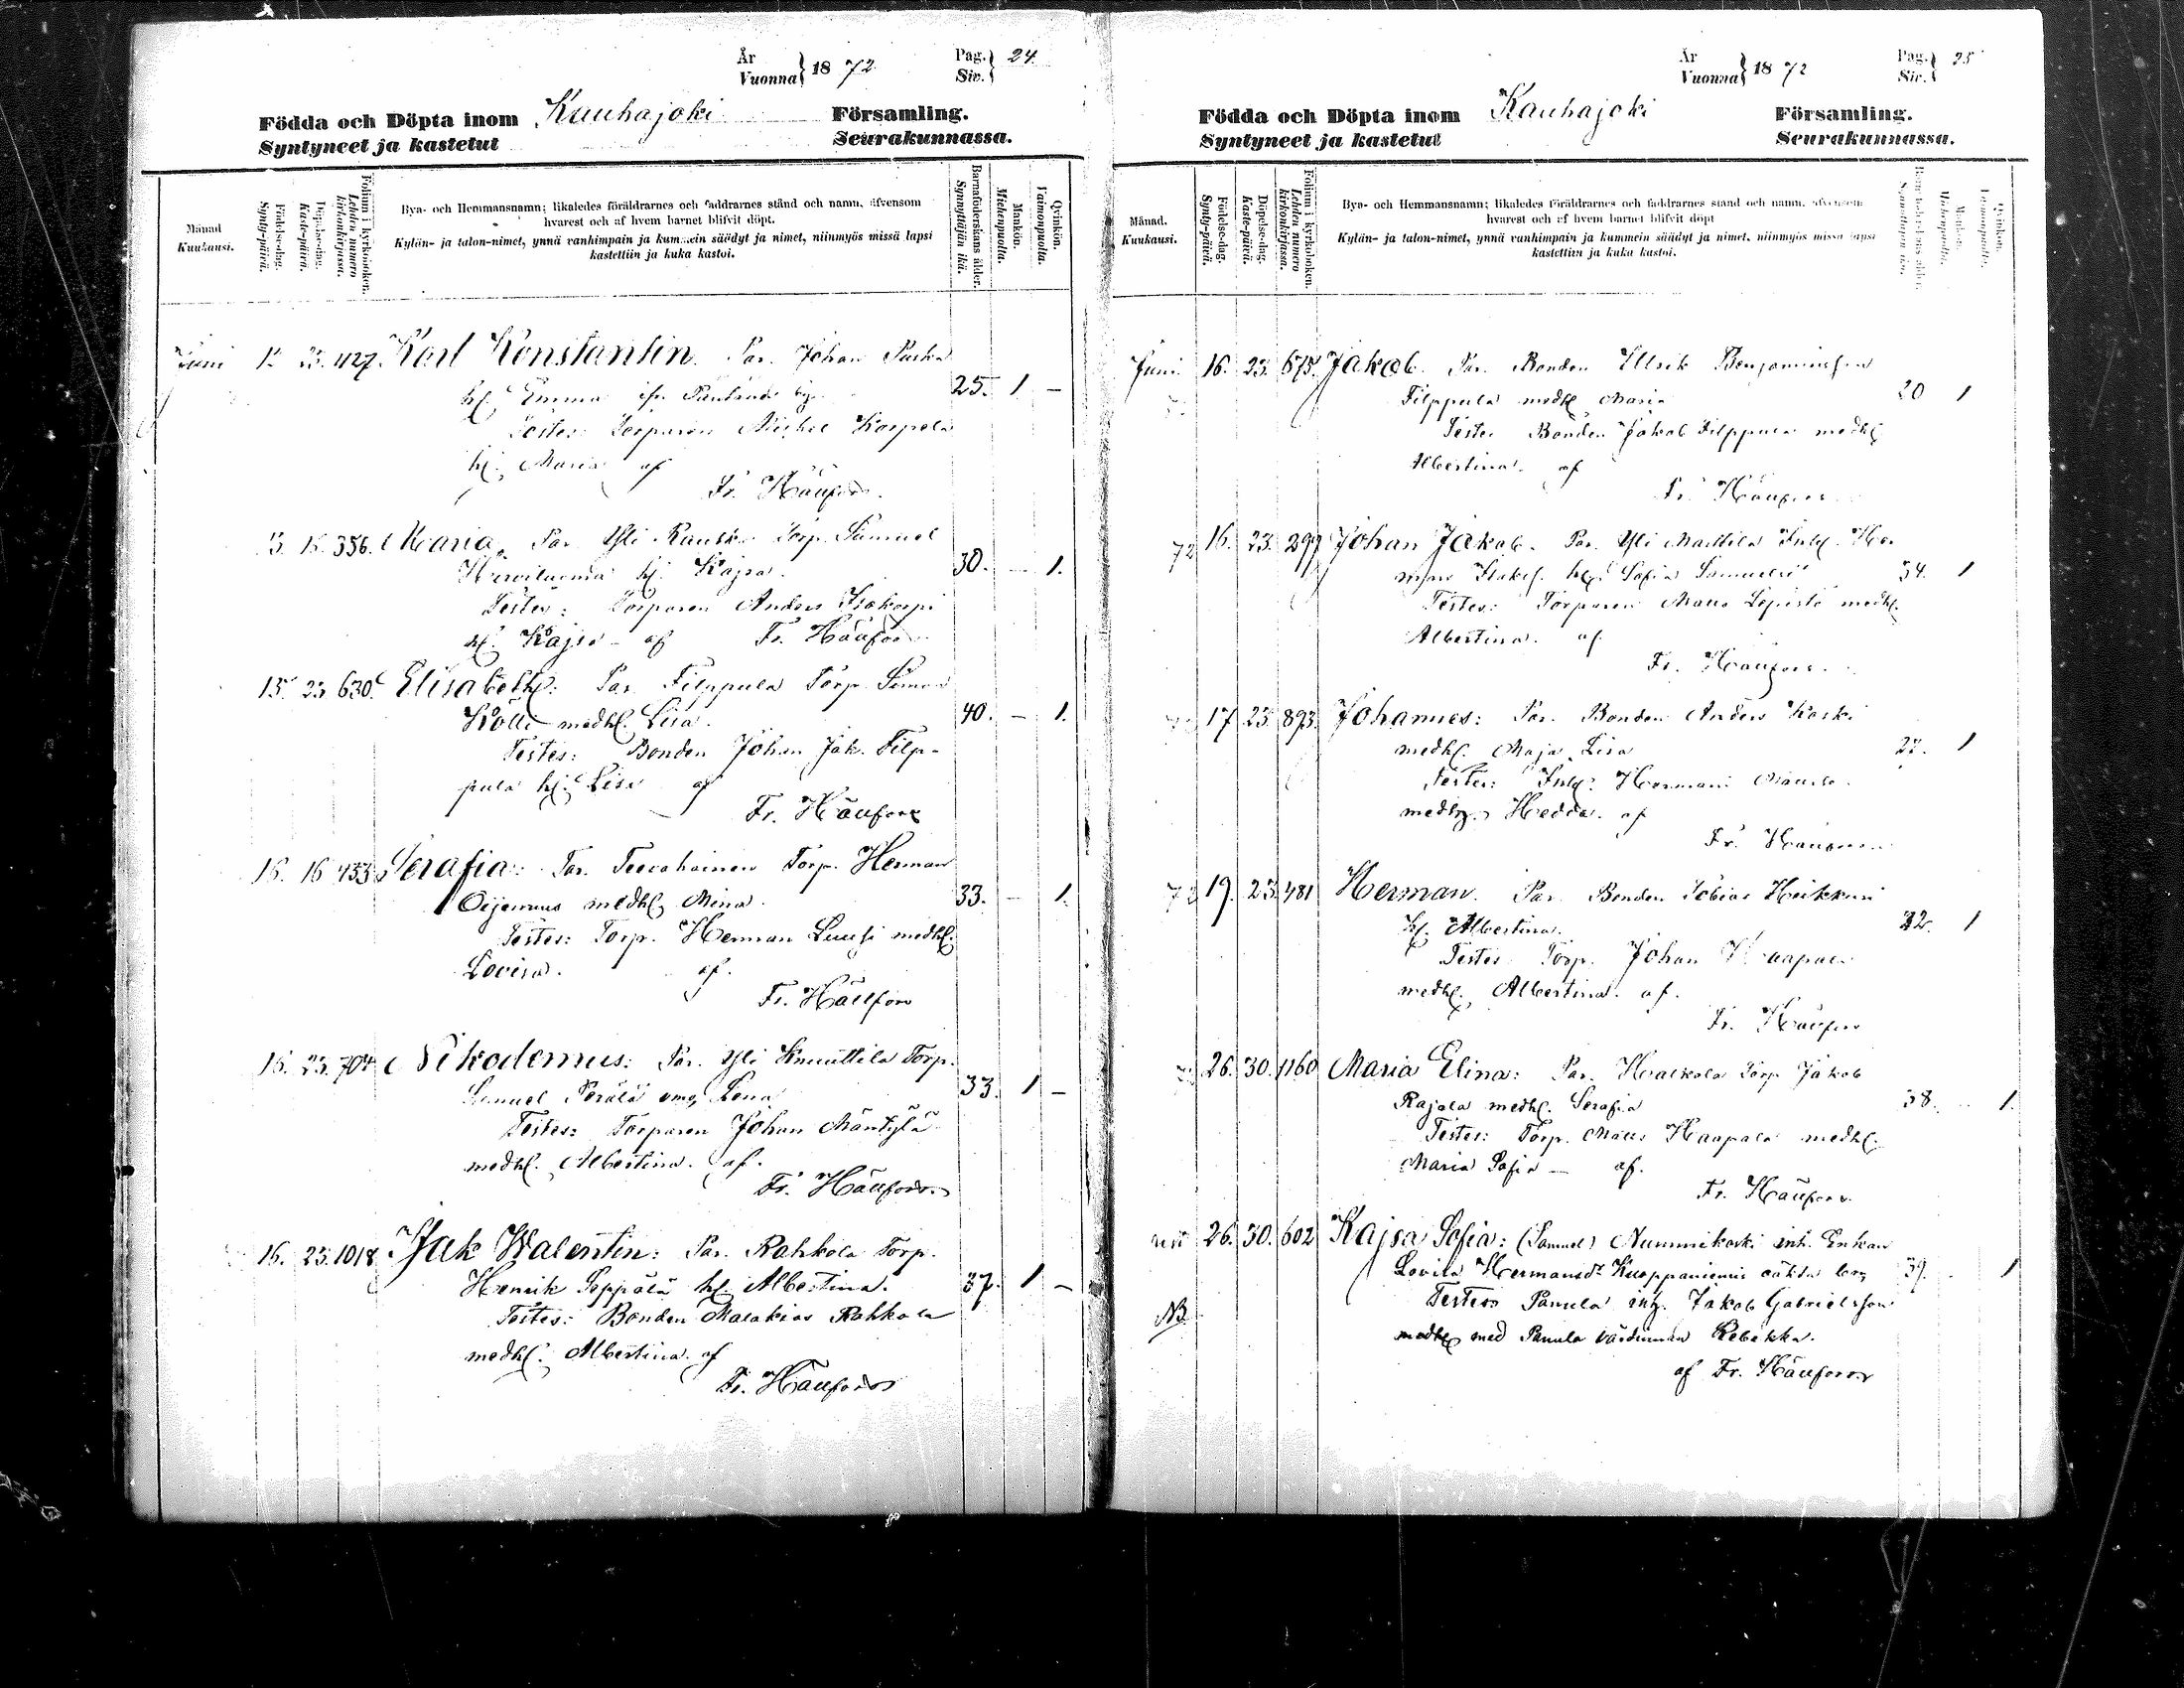 År
Vuonna } 18 72
Pag.
Siv. } 24.
Födda och Döpta inom Kauhajoki Församling.
Syntyneet ja kastetut Seurakunnassa.
Månad
Kuukausi.
Födelse-dag.
Synty-päivä.
Döpelse-dag.
Kaste-päivä.
Folium i kyrkoboken.
Lehden numero kirkonkirjassa.
Bya- och Hemmansnamn; likaledes föräldrarnes och faddrarnes stånd och namn, äfvensom
hvarest och af hvem barnet blifvit döpt.
Kylän- ja talon-nimet, ynnä vanhimpain ja kummein säädyt ja nimet, niinmyös missä lapsi
kastettiin ja kuka kastoi.
Barnaföderskans ålder.
Synnyttäjän ikä.
Mankön.
Miehenpuolia.
Qvinkön.
Vaimonpuolia.
Juni 23. 427. Karl Konstantin. Par. Johan
hu. Emma 25. 1 –
Testes: Torparen Michel Korpela
hu. Maria af
Fr. Häufors.
15. 356. Maria. Par. Yli Torp. Samuel
hu. Kajsa. 30. – 1.
Testes: Torparen Anders
hu. Kajsa – af Fr. Häufors
15 23 630. Elisabeth: Par. Filppula Torp. Simon
Kölli medhu. Lisa. 40. – 1.
Testes: Bonden Johan Jak. Filp-
pula hu. Lisa af
Fr. Häufors
16. 16 453 Serafia: Par. Torp. Herman
medhu. Mina. 33. – 1.
Testes: Torp. Herman Luusi medhu.
Lovisa. af.
Fr. Häufors
16. 23. 704 Nikodemus: Par. Yli Knuuttila Torp.
Samuel Perälä Lena 33. 1 –
Testes: Torparen Johan Mäntylä
medhu. Albertina. af.
Fr. Häufors.
16. 23. 1018 Isak Walentin: Par. Rahkola Torp.
Henrik Seppälä hu. Albertina. 37. 1 –
Testes: Bonden Malakias Rahkola
medhu. Albertina. af
Fr. Häufors
År
Vuonna } 18 72
Pag.
Siv. } 25
Födda och Döpta inom Kauhajoki Församling.
Syntyneet ja kastetut Seurakunnassa.
Månad.
Kuukausi.
Födelse-dag.
Synty-päivä.
Döpelse-dag.
Kaste-päivä.
Folium i kyrkoboken.
Lehden numero kirkonkirjassa.
Bya- och Hemmansnamn; likaledes föräldrarnes och faddrarnes stånd och namn, äfvensom
hvarest och af hvem barnet blifvit döpt
Kylän- ja talon-nimet, ynnä vanhimpain ja kummein säädyt ja nimet, niinmyös missä lapsi
kastettiin ja kuka kastoi.
Barnaföderskans ålder.
Synnyttäjän ikä.
Mankön.
Miehenpuolia.
Qvinkön.
Vaimonpuolia.
Juni 16. 23. 675. Jakob. Par. Bonden Ulrik Benjaminsson
Filppula medhu. Maria 20 1
Testes Bonden Jakob Filppula medhu.
Albertina. af
Fr. Häufors
72 16. 23. 297 Johan Jakob. Par. Yli Marttila Inh. Her-
man Isaks. hu. Sofia Samuelsd. 34. 1
Testes: Torparen Matts Lepistö medhu.
Albertina. af
Fr. Häufors.
17 23 893 Johannes: Par. Bonden Anders Koski
medhu. Maja Lisa 1
Testes: Inh: Hermani
medhu. Hedda. af
Fr. Häufors
72 19. 23. 481 Herman. Par. Bonden Tobias Heikkuri
hu. Albertina. 32. 1
Testes Torp. Johan Haapala
medhu. Albertina. af.
Fr. Häufors
26. 30. 1160 Maria Elina: Par. Torp. Jakob
Rajala medhu. Serafia 38. 1.
Testes: Torp. Matts Haapala medhu.
Maria Sofia – af.
Fr. Häufors.
26. 30. 602 Kajsa Sofia: (Samuel) Nummikoski inh. Enkan
Lovisa Hermansdr 39. 1
NB. Testes Panula inh. Jakob Gabrielsson
med Panula värdinnan Rebekka.
af Fr. Häufors